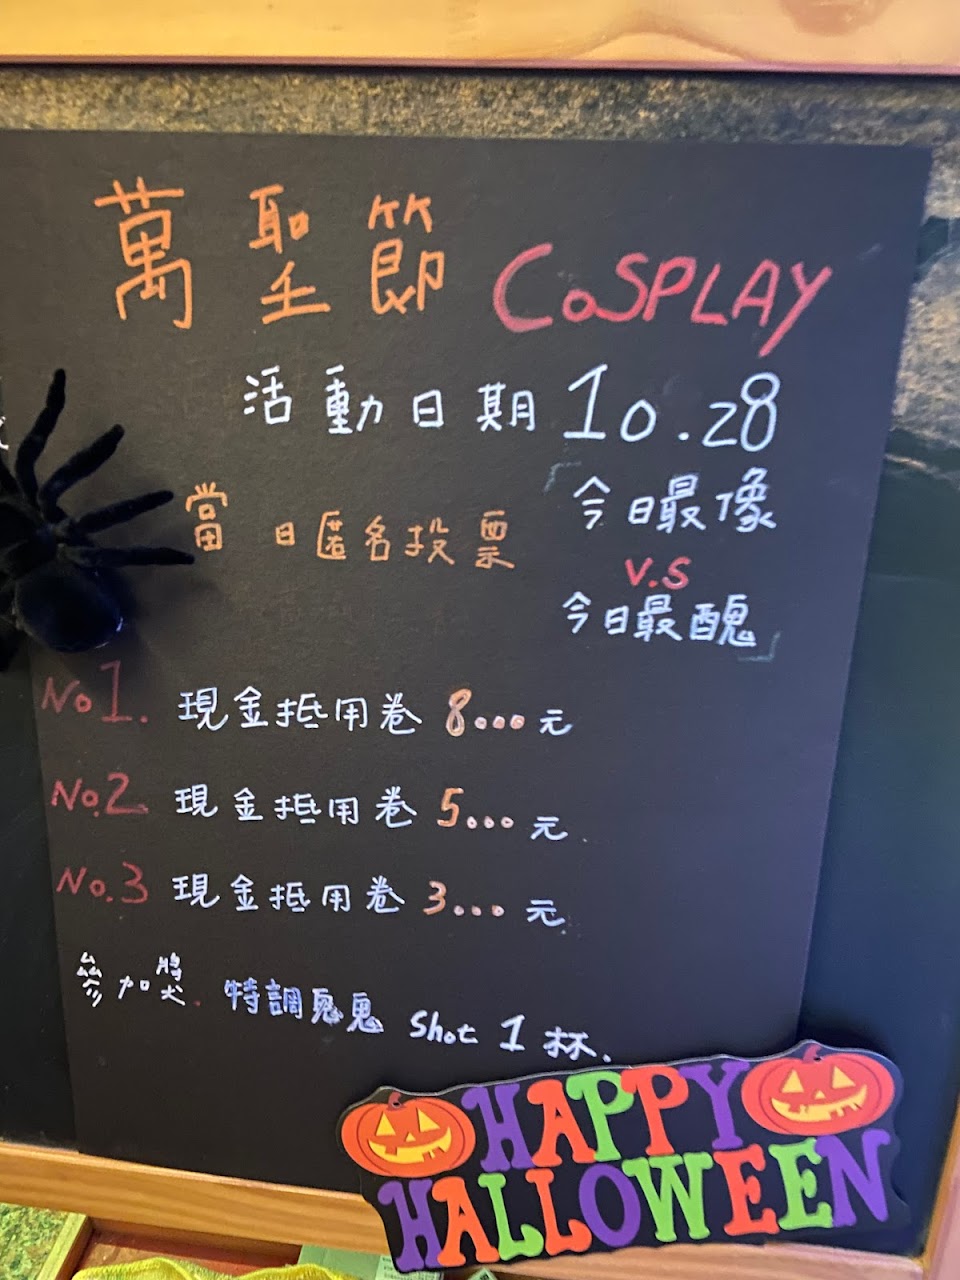 萬聖節 COSPLAY
活動日期 10.28
當日匿名投票
「今日最像
V.S
今日最醜」
No1. 現金抵用卷 8000元
No.2 現金抵用卷 5000元
No.3 現金抵用卷 3000元
參加獎. 特調鬼鬼 Shot 1杯.
HAPPY
HALLOWEEN